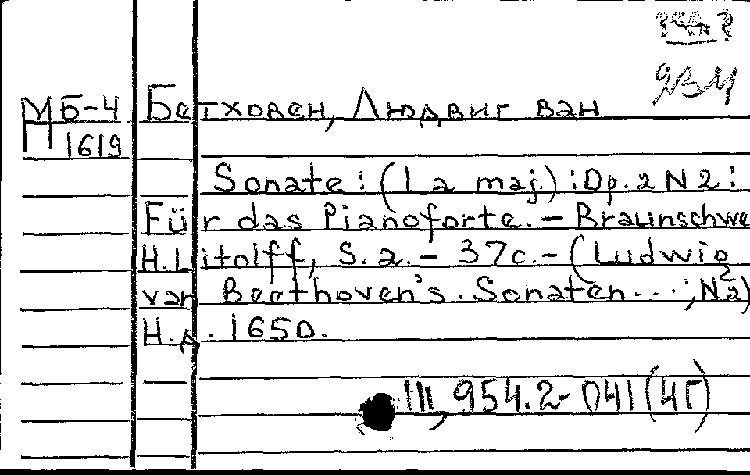 934
МБ-4 Бетховен, Людвиг ван
П 1619
Sonate: (La maj): Op. 2 N 2:
Für das Pianoforte. – Braunschwe
H. Litolff, S. a. – 37c. – (Ludwig
van Beethoven's. Sonaten...; N2)
Н.д. 1650.
Ш, 954.2-041(4Г)